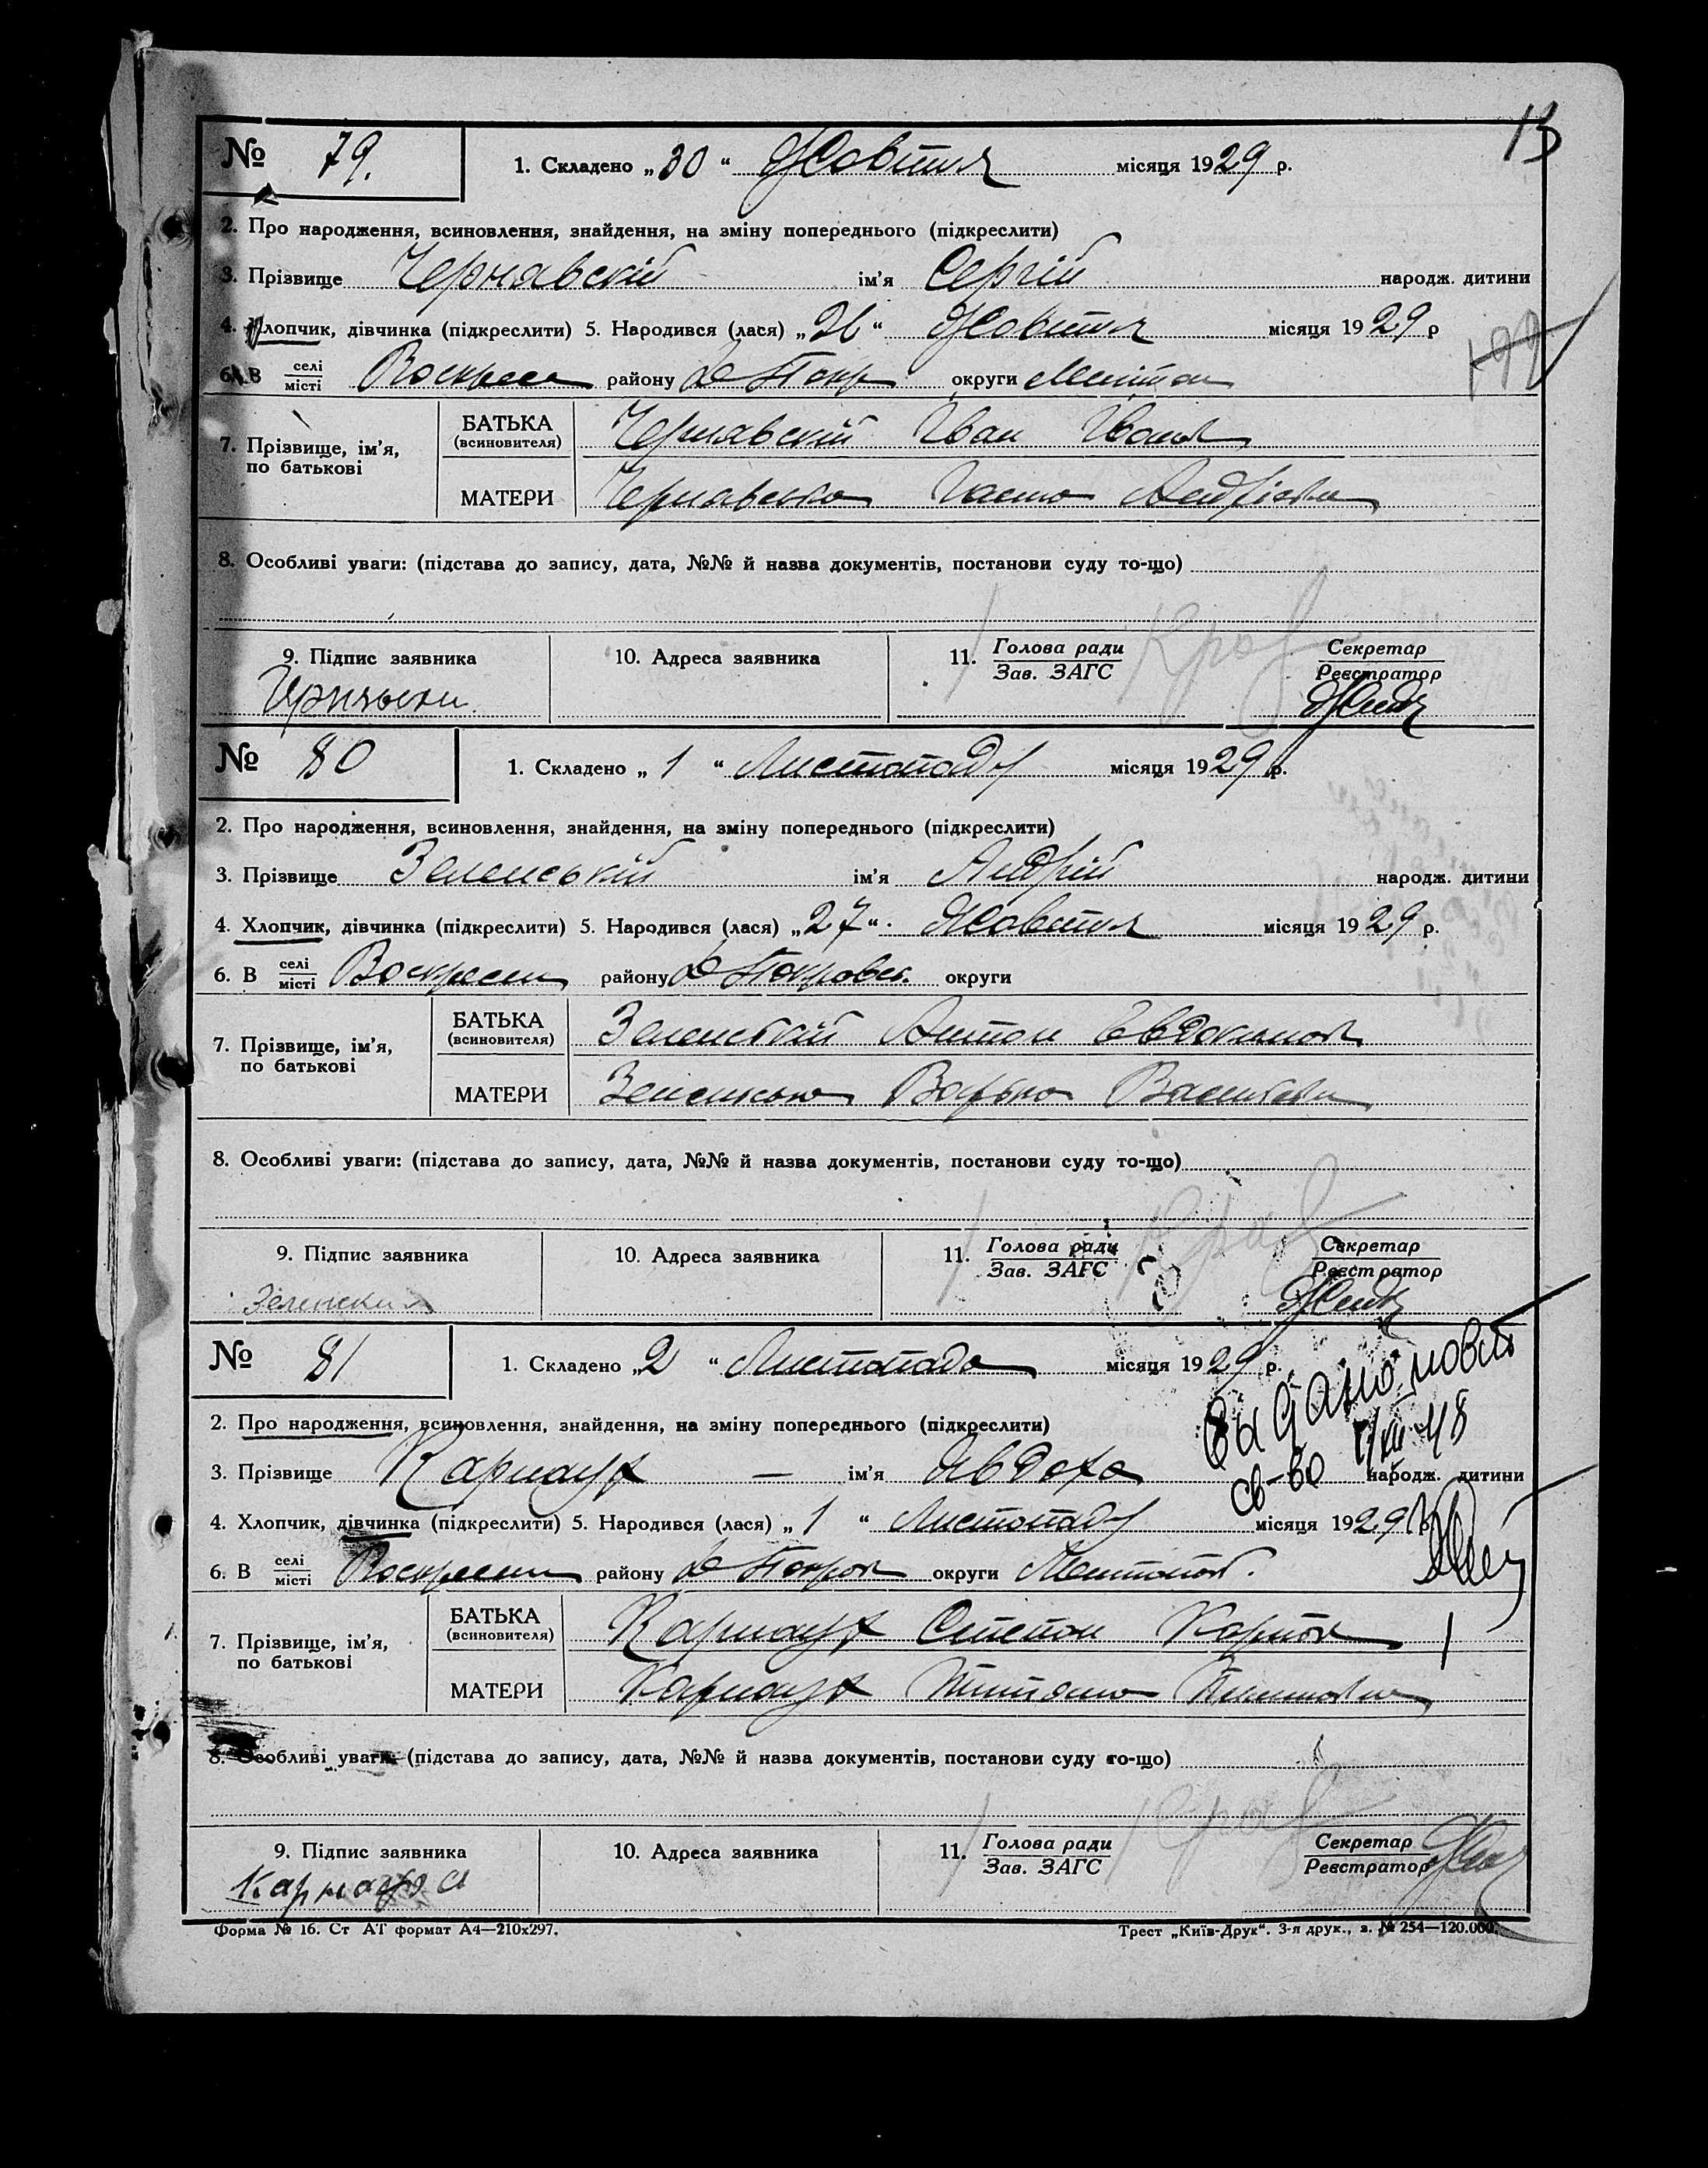 13
№ 79. 1. Складено „30“ Жовтня місяця 1929 р.
2. Про народження, всиновлення, знайдення, на зміну попереднього (підкреслити)
3. Прізвище Чернявскій ім'я Сергій народж. дитини
4. Хлопчик, дівчинка (підкреслити) 5. Народився (лася) „26“ Жовтня місяця 1929 р
6. В селі місті Воскресен району В Токм округи Мелітоп
7. Прізвище, ім'я, по батькові
БАТЬКА (всиновителя) Чернявскій Іван Іванов
МАТЕРИ Чернявська Андріевна
8. Особливі уваги: (підстава до запису, дата, №№ й назва документів, постанови суду то-що)
9. Підпис заявника 10. Адреса заявника 11. Голова ради Зав. ЗАГС Секретар Реєстратор
№ 80 1. Складено „1“ Листопаду місяця 1929 р.
2. Про народження, всиновлення, знайдення, на зміну попереднього (підкреслити)
3. Прізвище Зеленський ім'я Андрій народж. дитини
4. Хлопчик, дівчинка (підкреслити) 5. Народився (лася) „27“ Жовтня місяця 1929 р.
6. В селі місті Воскресен району округи
7. Прізвище, ім'я, по батькові
БАТЬКА (всиновителя) Зеленский Антон Евдокимов
МАТЕРИ Зеленська Варька Василевна
8. Особливі уваги: (підстава до запису, дата, №№ й назва документів, постанови суду то-що)
9. Підпис заявника 10. Адреса заявника 11. Голова ради Зав. ЗАГС Секретар Реєстратор
Зеленский
№ 81 1. Складено „2“ Листопада місяця 1929 р.
2. Про народження, всиновлення, знайдення, на зміну попереднього (підкреслити)
3. Прізвище Карнаух — ім'я Явдоха народж. дитини
Выдано повст
св-во 48
4. Хлопчик, дівчинка (підкреслити) 5. Народився (лася) „1“ Листопаду місяця 1929 р
6. В селі місті Воскресен району округи Мелитопол.
7. Прізвище, ім'я, по батькові
БАТЬКА (всиновителя) Карнаух Степан Карпов
МАТЕРИ Карнаух Титяна
8. Особливі уваги: (підстава до запису, дата, №№ й назва документів, постанови суду то-що)
9. Підпис заявника 10. Адреса заявника 11. Голова ради Зав. ЗАГС Секретар Реєстратор
Форма № 16. Ст АТ формат А4—210х297. Трест „Київ-Друк“. 3-я друк., з. № 254—120.000.